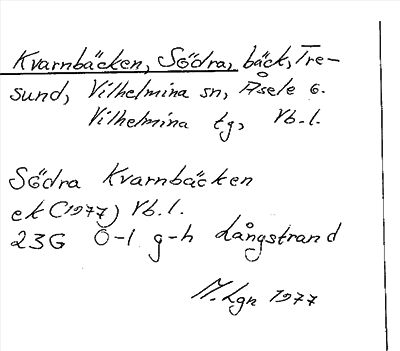 Kvarnbäcken, Södra, bäck, Tre-
sund, Vilhelmina sn, Åsele o.
Vilhelmina tg, Vb.l.
Södra Kvarnbäcken
ek (1977) Vb.l.
23G Ö-l g-h Långstrand
M.Lgn 1977